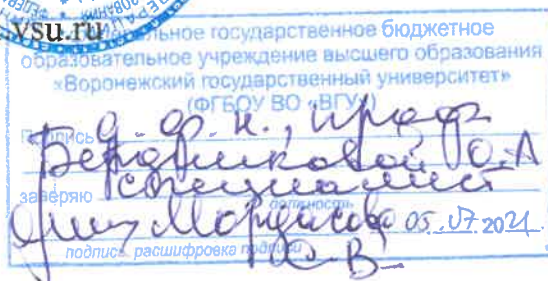 vsu.ru
льное государственное бюджетное
образовательное учреждение высшего образования
«Воронежский государственный университет»
(ФГБОУ ВО «ВГУ»)
Подпись д. ф. н., проф
Бердниковой О.А
заверяю специалист
должность
Мордасова 05.07.2021
подпись, расшифровка подписи